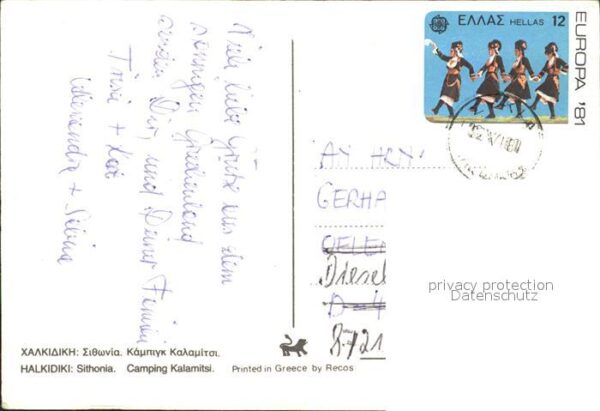 Viele liebe Grüße aus dem
sonnigen Griechenland
senden Dir, und Deiner Familie
+
Alexandra + Silvia
ΕΛΛΑΣ HELLAS 12
EUROPA '81
AN HRN.
GERHA
Diesel
D-4
8721
privacy protection
Datenschutz
ΧΑΛΚΙΔΙΚΗ: Σιθωνία. Κάμπιγκ Καλαμίτσι.
HALKIDIKI: Sithonia. Camping Kalamitsi. Printed in Greece by Recos